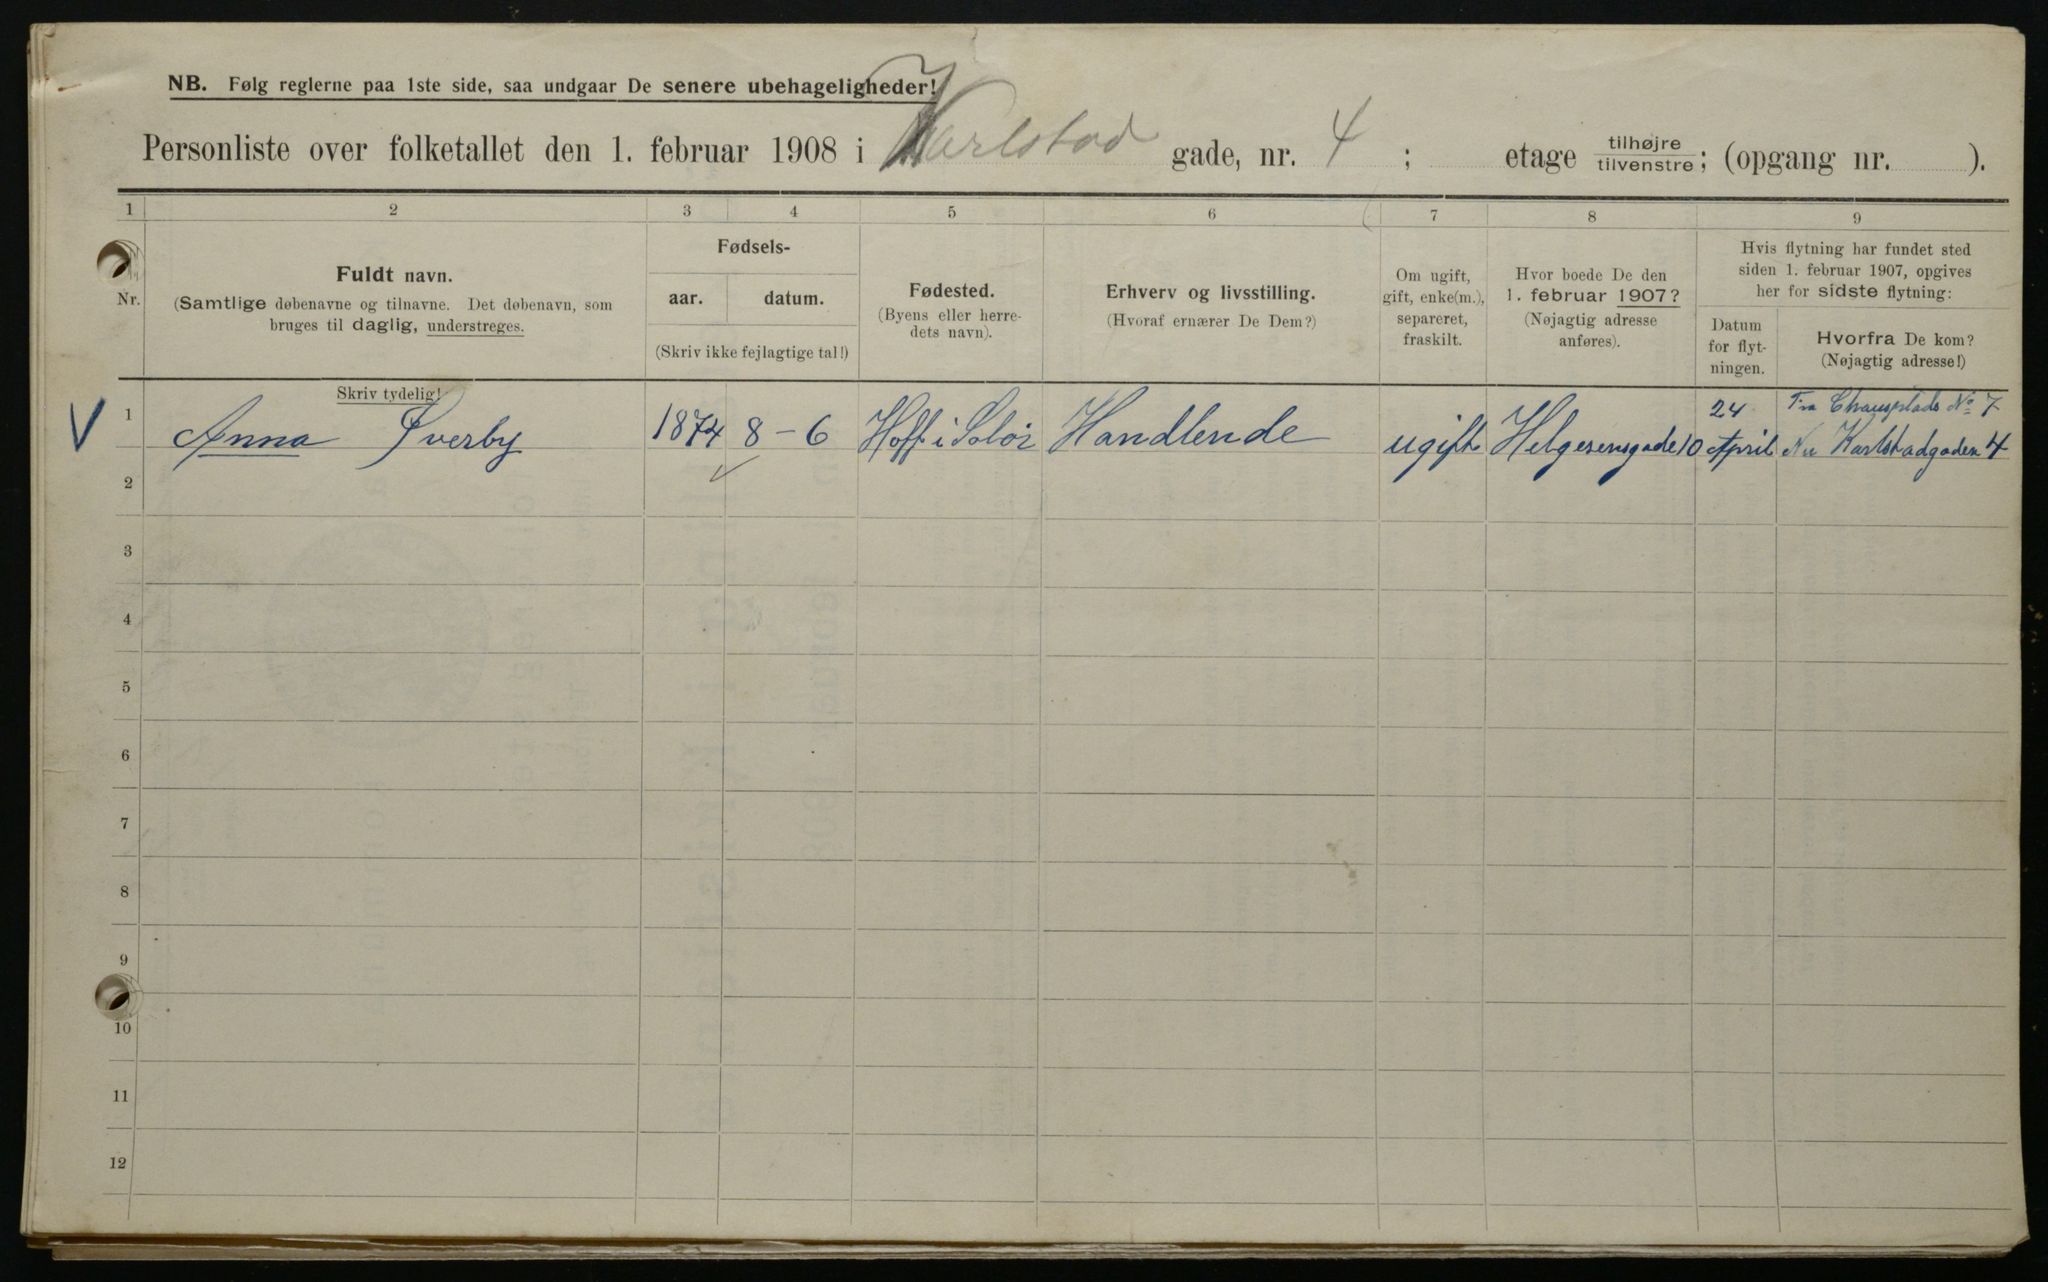 NB. Følg reglerne paa 1ste side, saa undgaar De senere ubehageligheder!
Personliste over folketallet den 1. februar 1908 i Karlstad gade, nr. 4 ; etage tilhøjre/tilvenstre; (opgang nr. ).
1 2 3 4 5 6 7 8 9
Nr.
Fuldt navn.
(Samtlige døbenavne og tilnavne. Det døbenavn, som
bruges til daglig, understreges.
Skriv tydelig!
Fødsels-
aar. datum.
(Skriv ikke fejlagtige tal!)
Fødested.
(Byens eller herre-
dets navn).
Erhverv og livsstilling.
(Hvoraf ernærer De Dem?)
Om ugift,
gift, enke(m.),
separeret,
fraskilt.
Hvor boede De den
1. februar 1907?
(Nøjagtig adresse
anføres).
Hvis flytning har fundet sted
siden 1. februar 1907, opgives
her for sidste flytning:
Datum
for flyt-
ningen.
Hvorfra De kom?
(Nøjagtig adresse!)
24 Fra No 7
V 1 Anna Sverby 1874 8-6 Hoff i Solør Handlende ugift Helgesensgade 10 April Nu Karlstadgaden 4
2
3
4
5
6
7
8
9
10
11
12